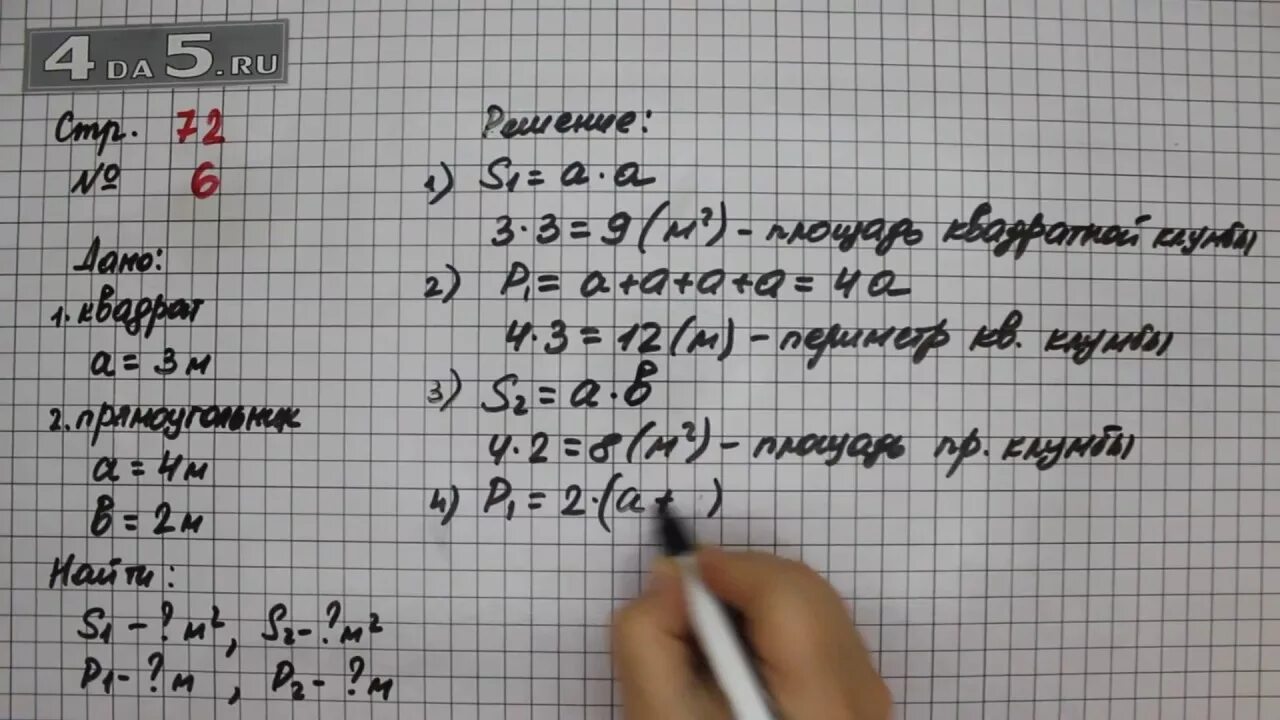 4DA5.RU
Стр. 72
№ 6
Дано:
1. квадрат
a = 3 м
2. прямоугольник
a = 4 м
в = 2 м
Найти:
S1 - ? м², S2 - ? м²
P1 - ? м, P2 - ? м
Решение:
1) S1 = a · a
3 · 3 = 9 (м²) - площадь квадратной клумбы
2) P1 = a + a + a + a = 4a
4 · 3 = 12 (м) - периметр кв. клумбы
3) S2 = a · в
4 · 2 = 8 (м²) - площадь пр. клумбы
4) P1 = 2 · (a + )